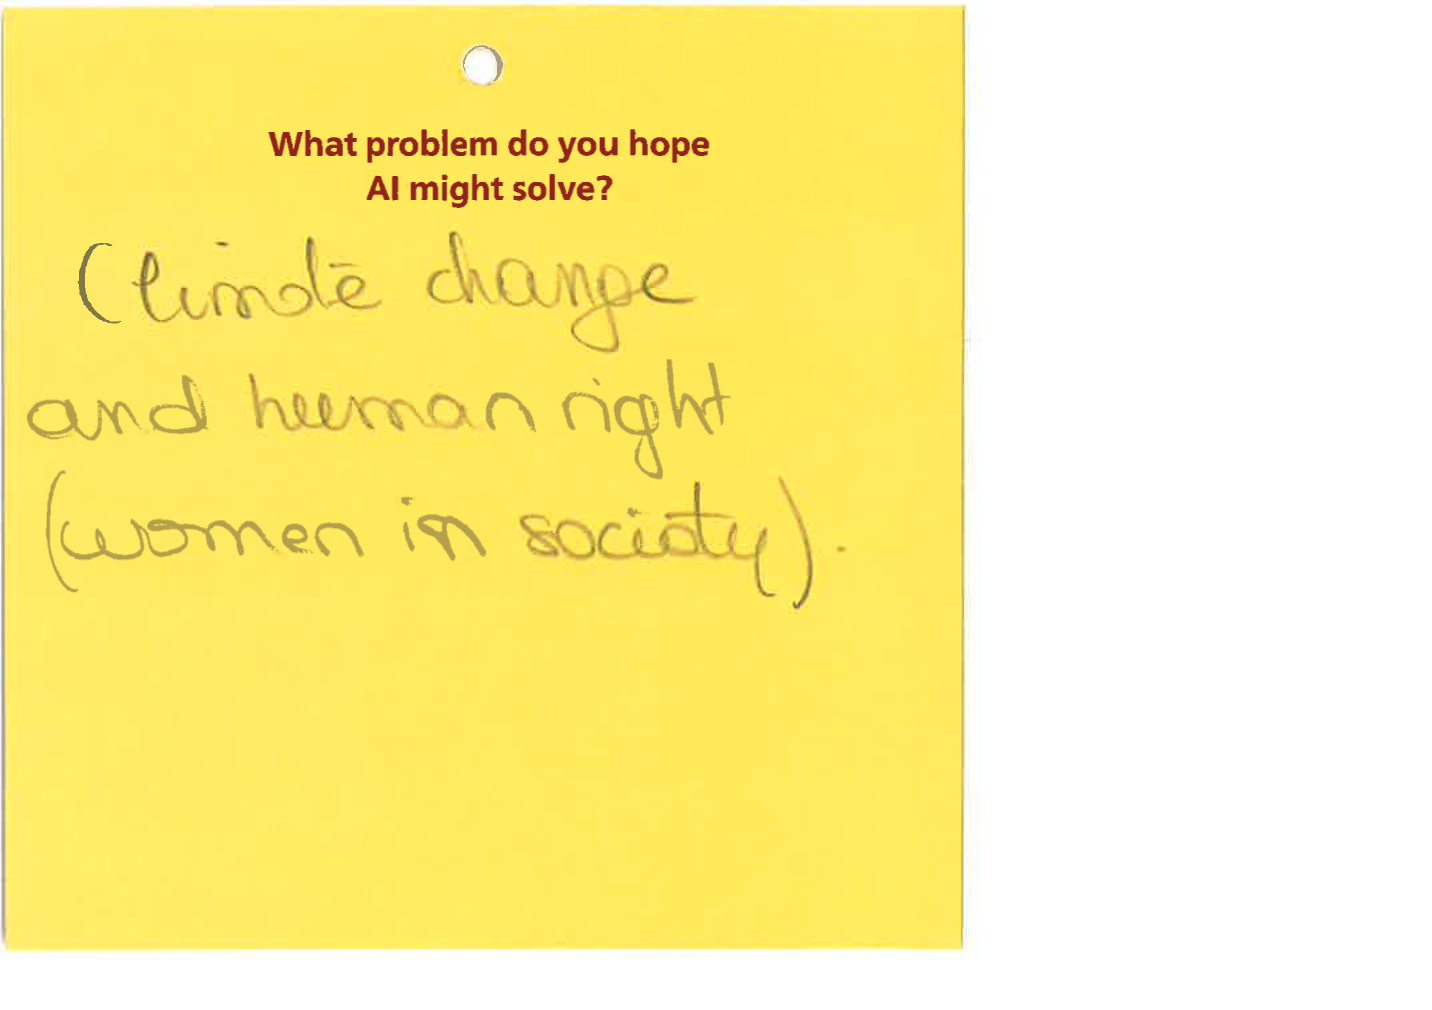 What problem do you hope
AI might solve?
Climate change
and human right
(women in society).